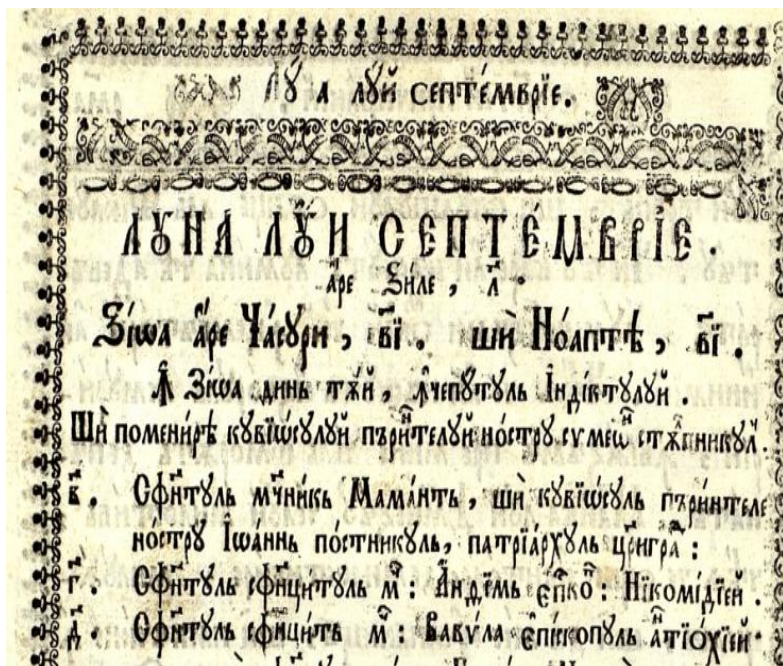 Лꙋ҃а лꙋй септе́мврїе.
ЛꙊНА ЛꙊ́И СЕПТЕ́МВРЇЕ.
а́ре Ꙃиле, л҃.
Ꙃі́ѡа а҆́ре Ча́сури, в҃і. шѝ Но́аптѣ, в҃і.
Ꙟ Ꙃі́ѡа динь тѫ́й, ꙟ҆чепутꙋль Індіктꙋлꙋй.
Шѝ поменирѣ кꙋвїѡсꙋлꙋй пъри́нтелꙋй но́стрꙋ сѵмеѡ́н стѫ́лпникꙋл.
в҃. Сфи́нтꙋль мч҃никь Мама́нть, шѝ кꙋвїѡ́сꙋль пъри́нтеле
но́стрꙋ Іѡа́ннь по́стникꙋль, патрїа́рхꙋль цр҃игра́д:
г҃. Сфи́нтꙋль сфинци́тꙋль м҃: А҆нді́мь є҆пко҃: Нїкомі́дїей.
д҃. Сфи́нтꙋль сфинци́ть м҃: Вави́ла є҆пі́скопꙋль а҆нтїо҆хі́ей